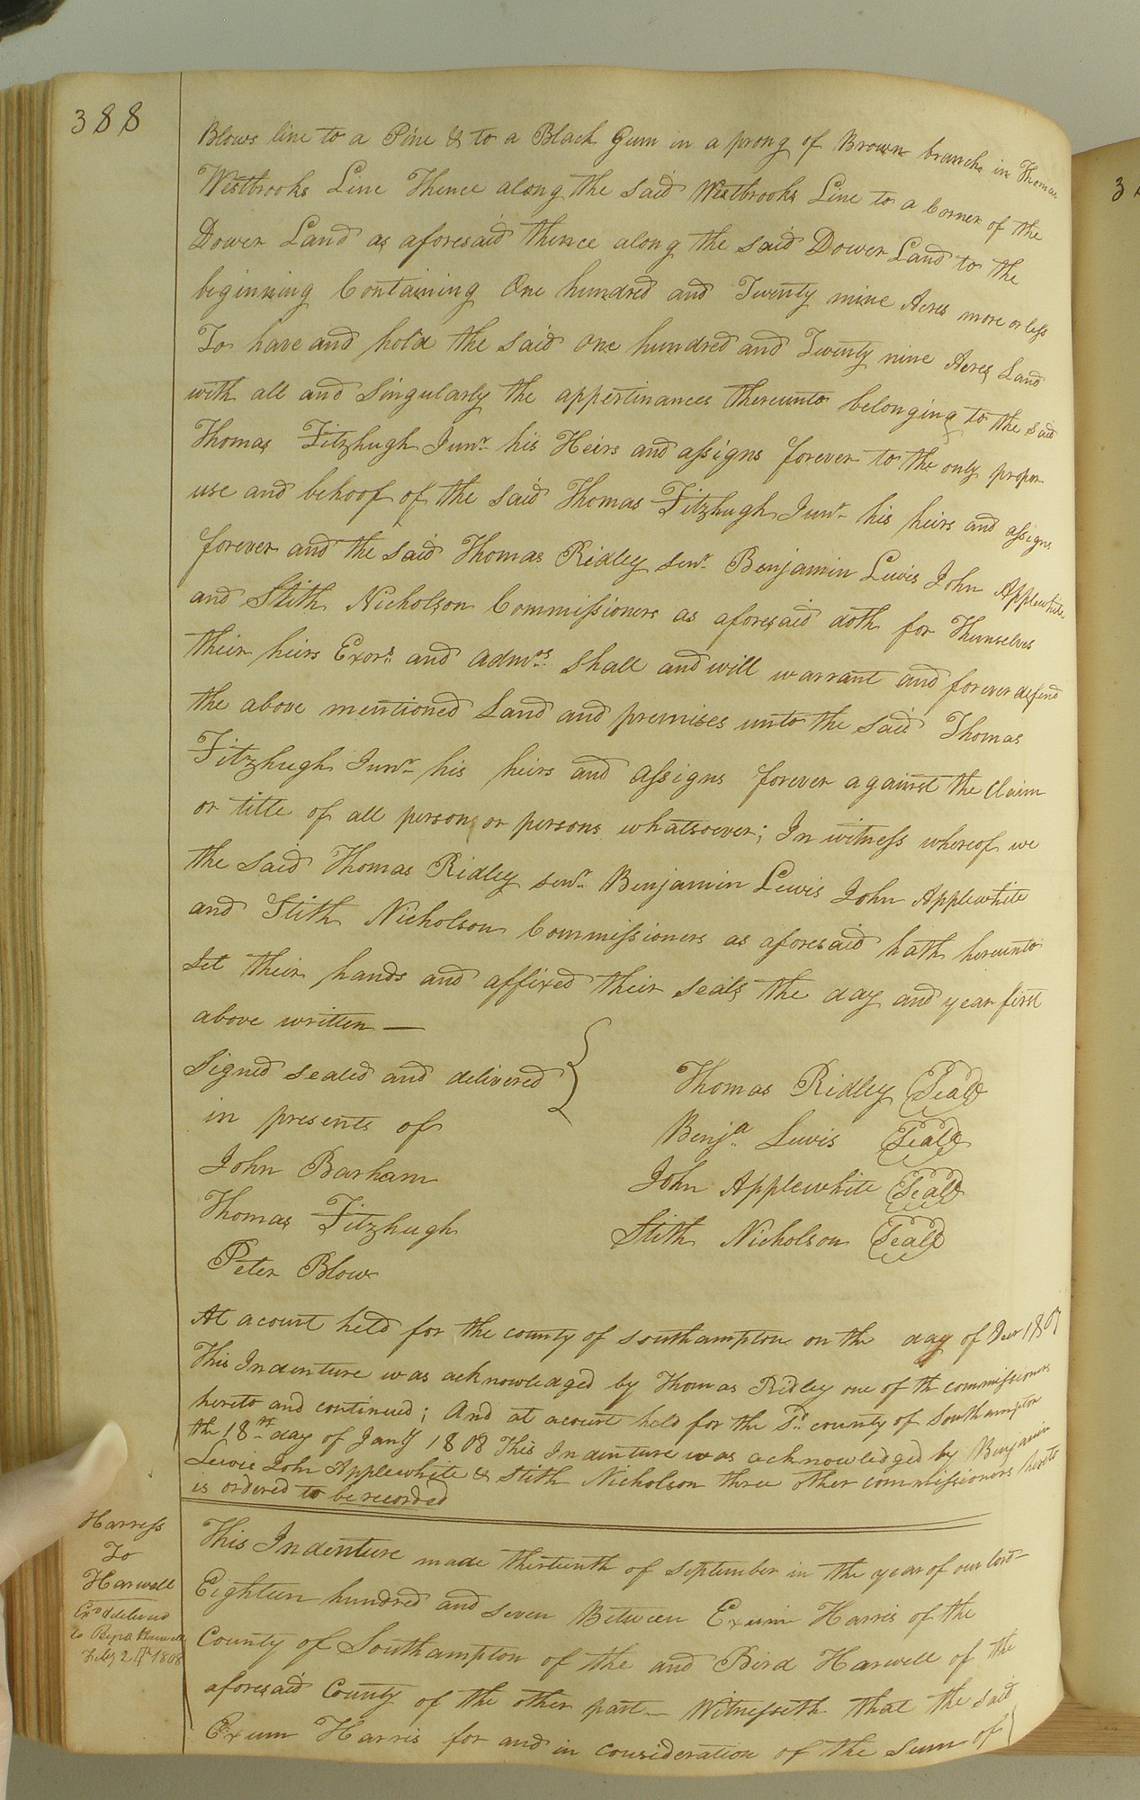 388
Blows line to a Pine & to a Black Gum in a prong of Brown branch in Thomas
Westbrooks Line Thence along the said Westbrooks Line to a Corner of the
Dower Land as aforesaid thence along the said Dower Land to the
beginning Containing One hundred and Twenty nine Acres more or less
To have and hold the said One hundred and Twenty nine Acres Land
with all and Singularly the appertinances thereunto belonging to the said
Thomas Fitzhugh Junr his Heirs and assigns forever to the only proper
use and behoof of the said Thomas Fitzhugh Junr his heirs and assigns
forever and the said Thomas Ridley senr Benjamin Lewis John Applewhite
and Stith Nicholson Commissioners as aforesaid doth for Themselves
their heirs Exors and Admors shall and will warrant and forever defend
the above mentioned Land and premises unto the said Thomas
Fitzhugh Junr his heirs and assigns forever against the claim
or title of all person or persons whatsoever; In witness whereof we
the said Thomas Ridley senr Benjamin Lewis John Applewhite
and Stith Nicholson Commissioners as aforesaid hath hereunto
set their hands and affixed their seals the day and year first
above written —
Signed sealed and delivered
in presents of
John Barham
Thomas Fitzhugh
Peter Blow
Thomas Ridley Seal
Benja Lewis Seal
John Applewhite Seal
Stith Nicholson Seal
At a court held for the county of Southampton on the day of Decr 1807
This Indenture was acknowledged by Thomas Ridley one of the commissioners
hereto and continued; And at a court held for the sd county of Southampton
the 18th day of Jany 1808 This Indenture was acknowledged by Benjamin
Lewis John Applewhite & Stith Nicholson three other commissioners hereto
is ordered to be recorded
Harress
To
Harwell
delivered
to
Feby 1808
This Indenture made thirteenth of September in the year of our lord
Eighteen hundred and seven Between Exum Harris of the
County of Southampton of the and Bird Harwell of the
aforesaid County of the other part — Witnesseth that the said
Exum Harris for and in consideration of the sum of